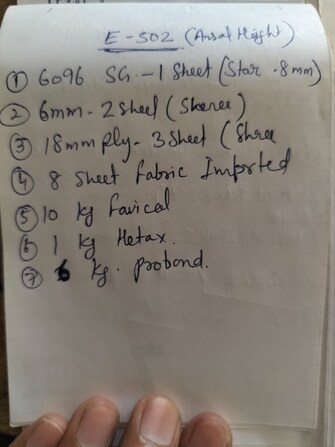 E-502 (Ansal Hight)
① 6096 SG. - 1 Sheet (Star - 8mm)
② 6mm - 2 Sheel (Sheree)
③ 18mm ply - 3 Sheet (Shree
④ 8 Sheet Fabric Imported
⑤ 10 kg Favical
⑥ 1 kg Hetax.
⑦ 6 kg. probond.